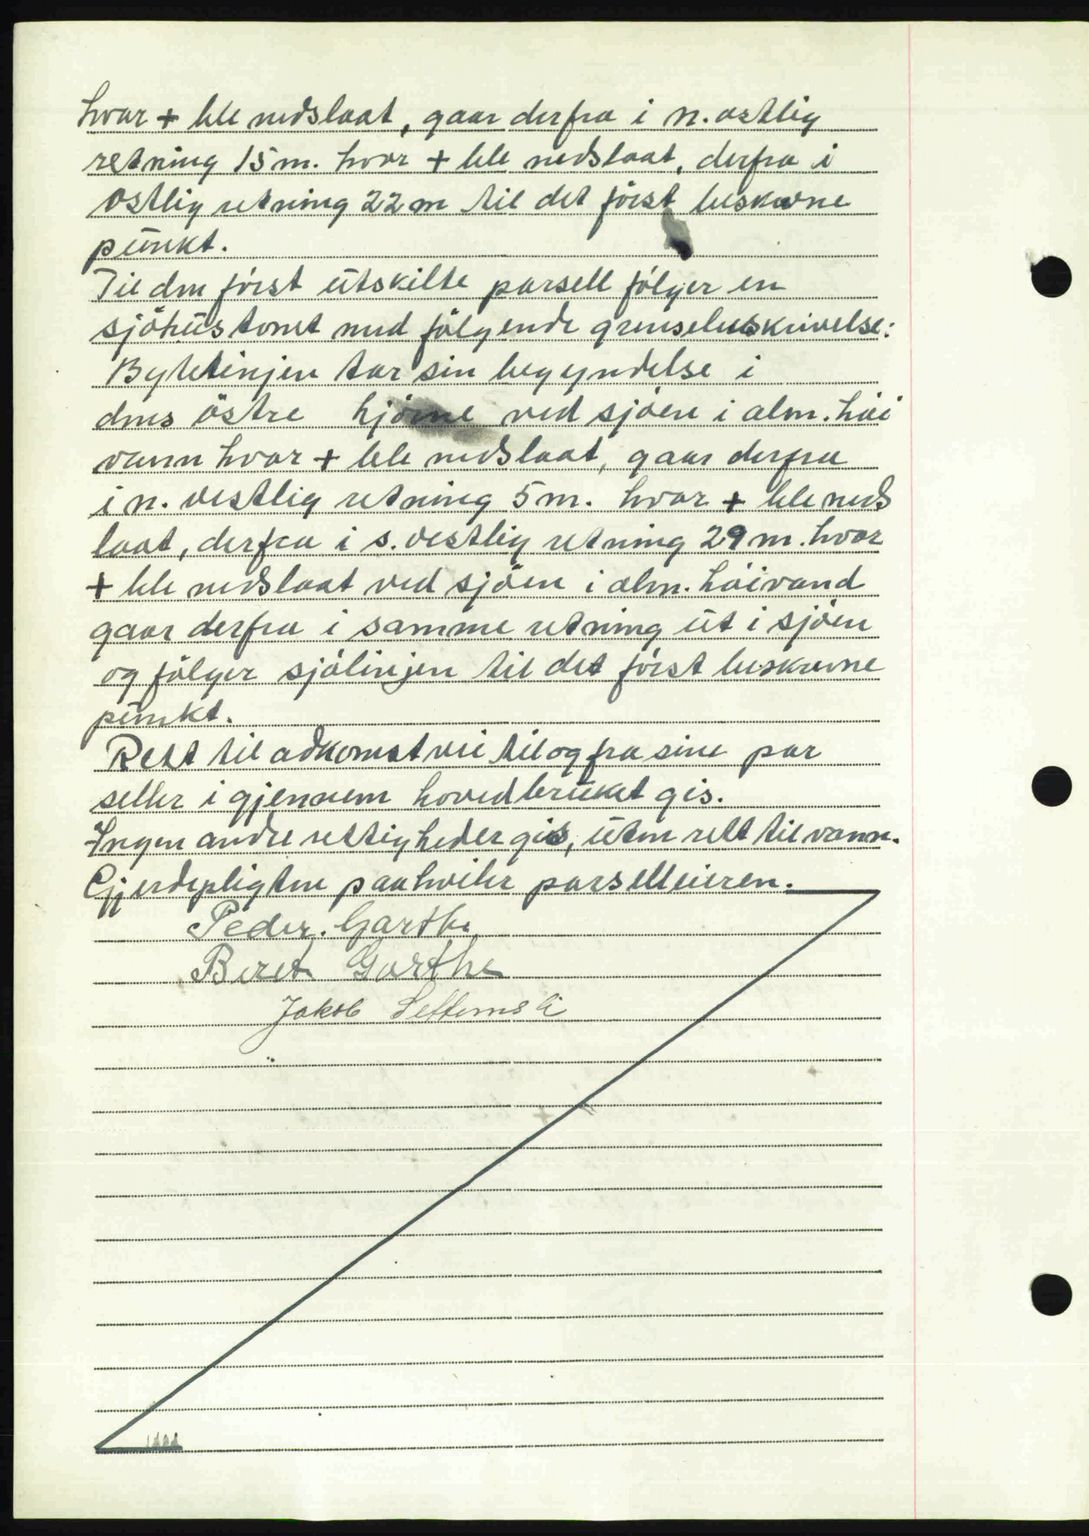 hvor + ble nedslaat, gaar derfra i n. østlig
retning 15 m. hvor + ble nedslaat, derfra i
østlig retning 22 m til det först beskrevne
punkt.
Til den först utskilte parsell fölger en
sjöhustomt med fölgende grensebeskrivelse:
Bytelinjen tar sin begyndelse i
dens östre hjörne ved sjöen i alm. höi
vann hvor + ble nedslaat, gaar derfra
i n. vestlig retning 5 m. hvor + ble neds
laat, derfra i s. vestlig retning 29 m. hvor
+ ble nedslaat ved sjöen i alm. höivand
gaar derfra i samme retning ut i sjöen
og fölger sjölinjen til det först beskrevne
punkt.
Rett til adkomstvei til og fra sine par
seller i gjennem hovedbruket gis.
Ingen andre rettigheder gis, uten rett til vann.
Gjerdepligten paahviler parselleieren.
Peder. Garthe
Beret Garthe
Jakob